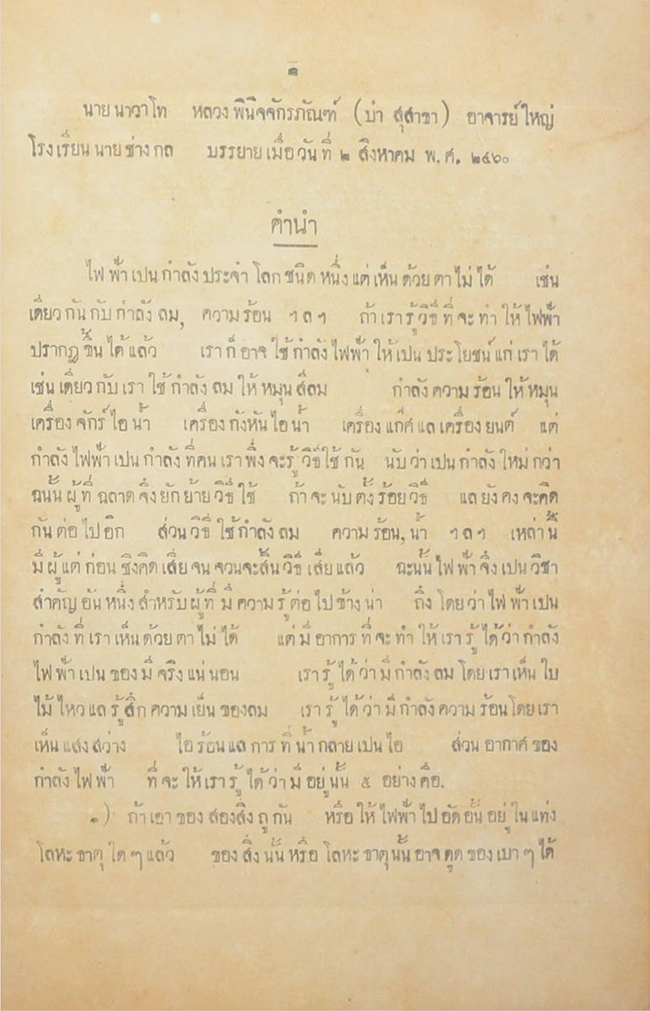 ๑
นายนาวาโท หลวงพินิจจักรภัณฑ์ (บ๋า สุสาขา) อาจารย์ใหญ่
โรงเรียนนายช่างกล บรรยายเมื่อวันที่ ๒ สิงหาคม พ.ศ. ๒๔๖๐
คำนำ
ไฟฟ้าเปนกำลังประจำโลกชนิดหนึ่งแต่เห็นด้วยตาไม่ได้ เช่น
เดี่ยวกันกับกำลังลม, ความร้อน ฯลฯ ถ้าเรารู้วิธีที่จะทำให้ไฟฟ้า
ปรากฏขึ้นได้แล้ว เราก็อาจใช้กำลังไฟฟ้าให้เปนประโยชน์แก่เราได้
เช่นเดี่ยวกับเราใช้กำลังลมให้หมุนสีลม กำลังความร้อนให้หมุน
เครื่องจักร์ไอน้ำ เครื่องกังหันไอน้ำ เครื่องแก๊ศแลเครื่องยนต์ แต่
กำลังไฟฟ้าเปนกำลังที่คนเราพึ่งจะรู้วิธีใช้กัน นับว่าเปนกำลังใหม่กว่า
ฉนั้นผู้ที่ฉลาดจึงยักย้ายวิธีใช้ ถ้าจะนับตั้งร้อยวิธี แลยังคงจะคิด
กันต่อไปอีก ส่วนวิธีใช้กำลังลม ความร้อน, น้ำ ฯลฯ เหล่านี้
มีผู้แต่ก่อนซึ่งคิดเสียจนจวนจะสิ้นวิธีเสียแล้ว ฉะนั้นไฟฟ้าจึงเปนวิชา
สำคัญอันหนึ่งสำหรับผู้ที่มีความรู้ต่อไปข้างน่า ถึงโดยว่าไฟฟ้าเปน
กำลังที่เราเห็นด้วยตาไม่ได้ แต่มีอาการที่จะทำให้เรารู้ได้ว่ากำลัง
ไฟฟ้าเปนของมีจริงแน่นอน เรารู้ได้ว่ามีกำลังลมโดยเราเห็นใบ
ไม้ไหวแลรู้สึกความเย็นของลม เรารู้ได้ว่ามีกำลังความร้อนโดยเรา
เห็นแสงสว่าง ไอร้อนแลการที่น้ำกลายเปนไอ ส่วนอากาศของ
กำลังไฟฟ้า ที่จะให้เรารู้ได้ว่ามีอยู่นั้น ๕ อย่างคือ.
๑) ถ้าเอาของสองสิ่งถูกัน หรือให้ไฟฟ้าไปอัดอั้นอยู่ในแท่ง
โลหะธาตุใดๆแล้ว ของสิ่งนั้นหรือโลหะธาตุนั้นอาจดูดของเบาๆได้